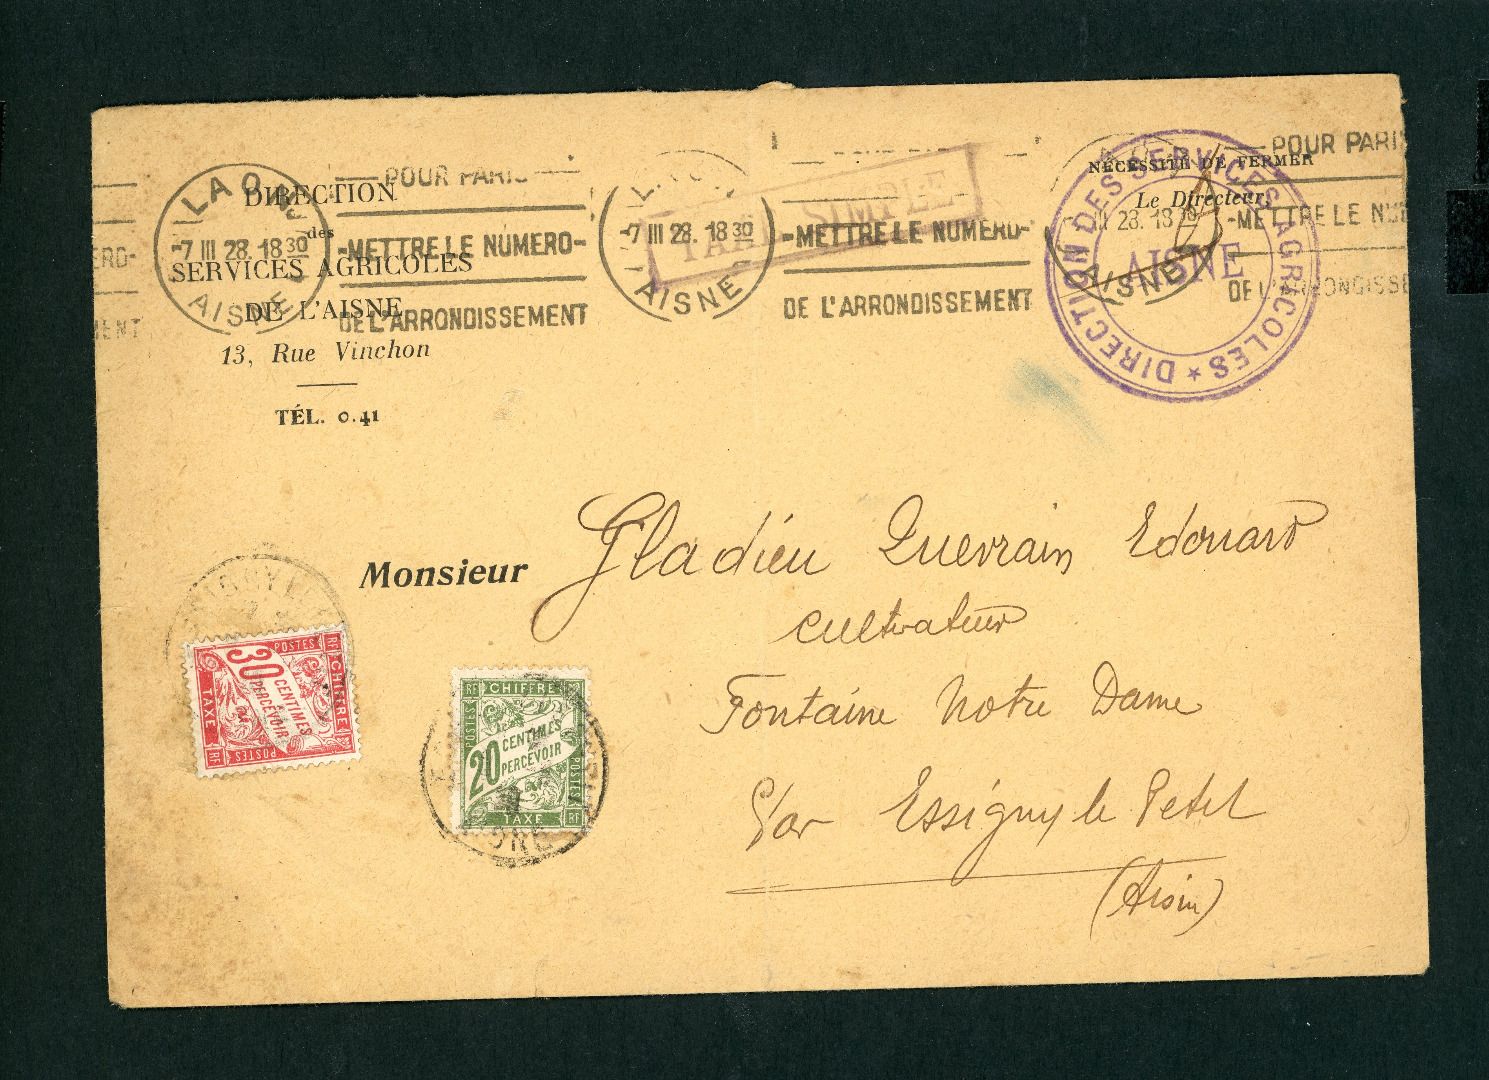 DIRECTION
des
SERVICES AGRICOLES
DE L'AISNE
13, Rue Vinchon
TÉL. 0.41
LAON
7 III 28. 18 30
AISNE
POUR PARIS
-METTRE LE NUMERO-
DE L'ARRONDISSEMENT
7 III 28. 18 30
AISNE
-METTRE LE NUMERO-
DE L'ARRONDISSEMENT
TAXE SIMPLE
NÉCESSITÉ DE FERMER
Le Directeur,
III 28. 18 30
AISNE
POUR PARIS
-METTRE LE NUM
DE L'ARRONDISSE
RO-
MENT
DIRECTION DES SERVICES AGRICOLES ★
AISNE
Monsieur Gladieu Quevrain Edouard
cultivateur
Fontaine Notre Dame
Par Essigny le Petit
(Aisne)
POSTES RF
CHIFFRE
30 CENTIMES
PERCEVOIR
TAXE
RF POSTES
RF CHIFFRE
POSTES
20 CENTIMES
À PERCEVOIR
POSTES
TAXE RF